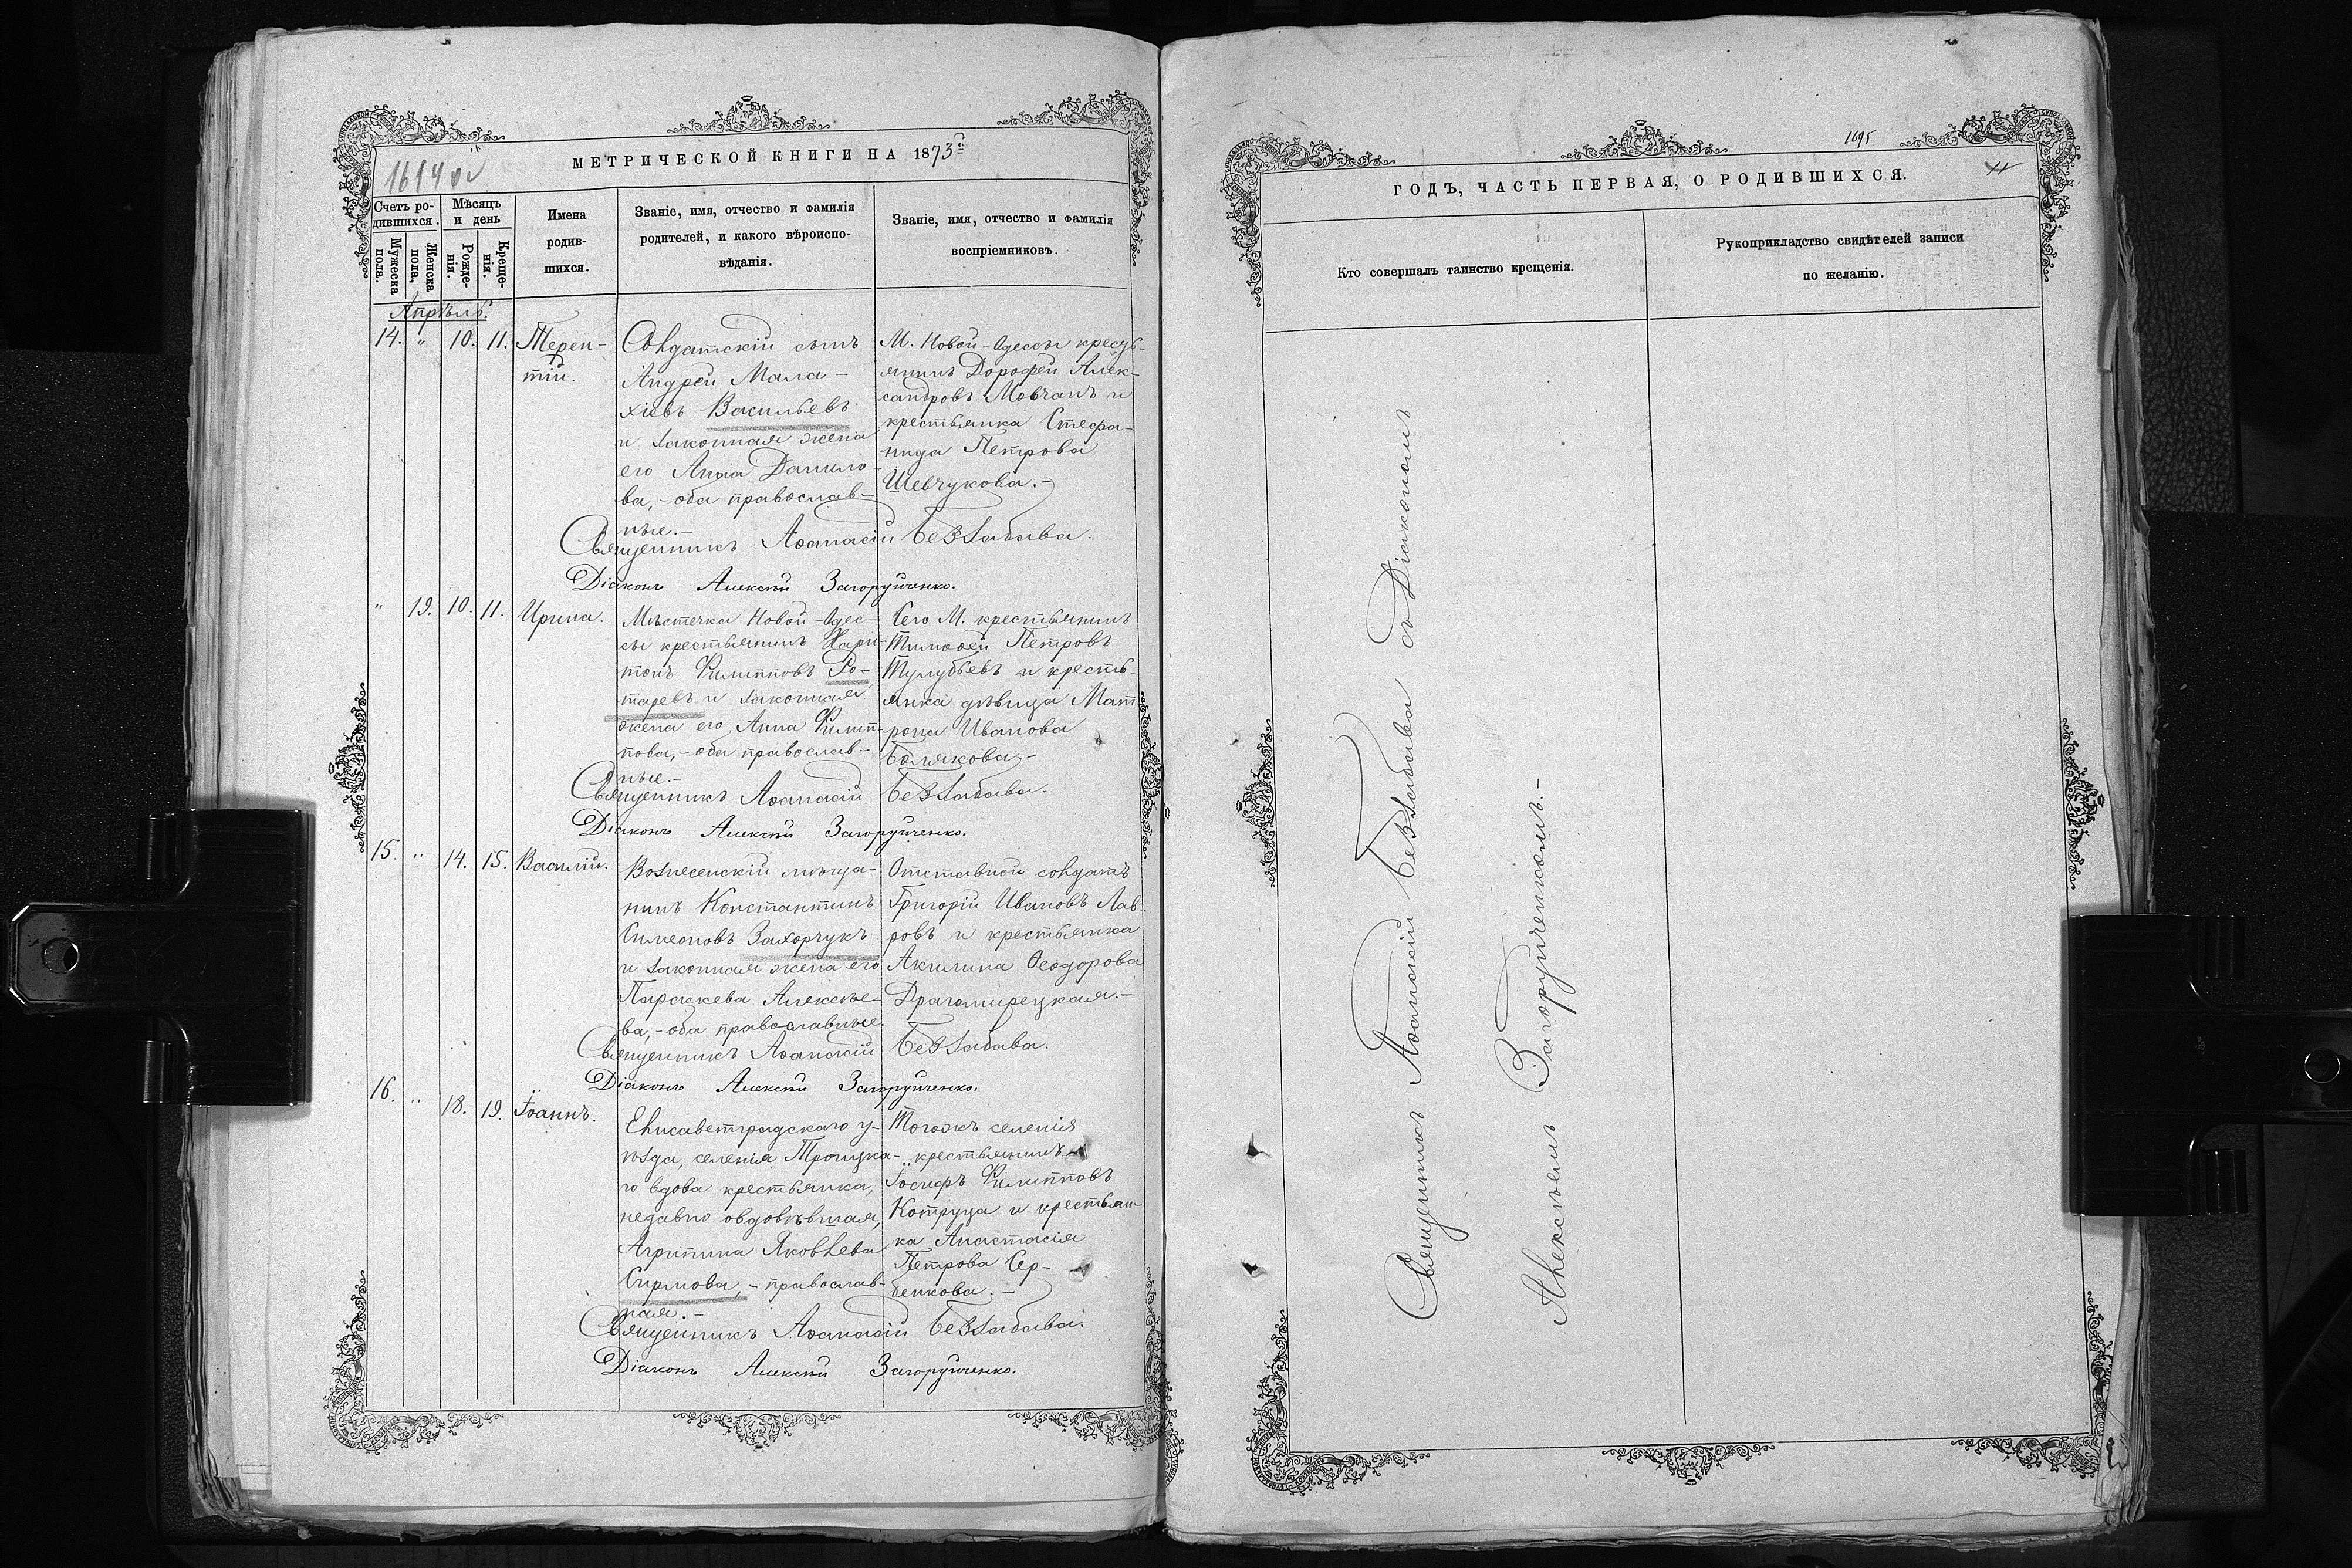 1694 об
МЕТРИЧЕСКОЙ КНИГИ НА 1873й
Счетъ ро-
дившихся.
Мужеска пола.
Женска пола.
Мѣсяцъ
и день
Рожде-
нія.
Креще-
нія.
Имена
родив-
шихся.
Званіе, имя, отчество и фамилія
родителей, и какого вѣроиспо-
вѣданія.
Званіе, имя, отчество и фамилія
воспріемниковъ.
Апрѣль.
14. " 10. 11. Терен-
тій.
Солдатскій сынъ
Андрей Мала-
хіевъ Васильевъ
и законная жена
его Анна Данило-
ва, - оба православ-
ные. -
М. Новой-Одессы кресть-
янинъ Дорофей Алек-
сандровъ Мовчанъ и
крестьянка Стефа-
нида Петрова
Шевчукова. -
Священникъ Аѳанасій Беззабава.
Діаконъ Алексѣй Загоруйченко.
" 19. 10. 11. Ирина.
Мѣстечка Новой-Одес-
сы крестьянинъ Хари-
тонъ Филипповъ Ро-
таревъ и законная
жена его Анна Филип-
пова, - оба православ-
ные. -
Сего М. крестьянинъ
Тимоѳей Петровъ
Тулубьевъ и кресть-
янка дѣвица Мат-
рона Иванова
Болякова, -
Священникъ Аѳанасій Беззабава.
Діаконъ Алексѣй Загоруйченко.
15. " 14. 15. Василій.
Вознесенскій мѣща-
нинъ Константинъ
Симеоновъ Захорчукъ
и законная жена его
Параскева Алексѣе-
ва, - оба православные.
Отставной солдатъ
Григорій Ивановъ Лав-
ровъ и крестьянка
Акилина Ѳеодорова
Драгомирецкая. -
Священникъ Аѳанасій Беззабава.
Діаконъ Алексѣй Загоруйченко.
16. " 18. 19. Іоаннъ.
Елисаветградскаго у-
ѣзда, селенія Троицка-
го вдова крестьянка,
недавно овдовѣвшая,
Агрипина Яковлева
Сирмова, - православ-
ная. -
Тогожъ селенія
крестьянинъ
Іосифъ Филипповъ
Котруца и крестьян-
ка Анастасія
Петрова Сер-
бенкова. -
Священникъ Аѳанасій Беззабава.
Діаконъ Алексѣй Загоруйченко.
1695
ГОДЪ, ЧАСТЬ ПЕРВАЯ, О РОДИВШИХСЯ.
Кто совершалъ таинство крещенія.
Рукоприкладство свидѣтелей записи
по желанію.
Священникъ Аѳанасій Беззабава съ Діакономъ
Алексѣемъ Загоруйченкомъ. -